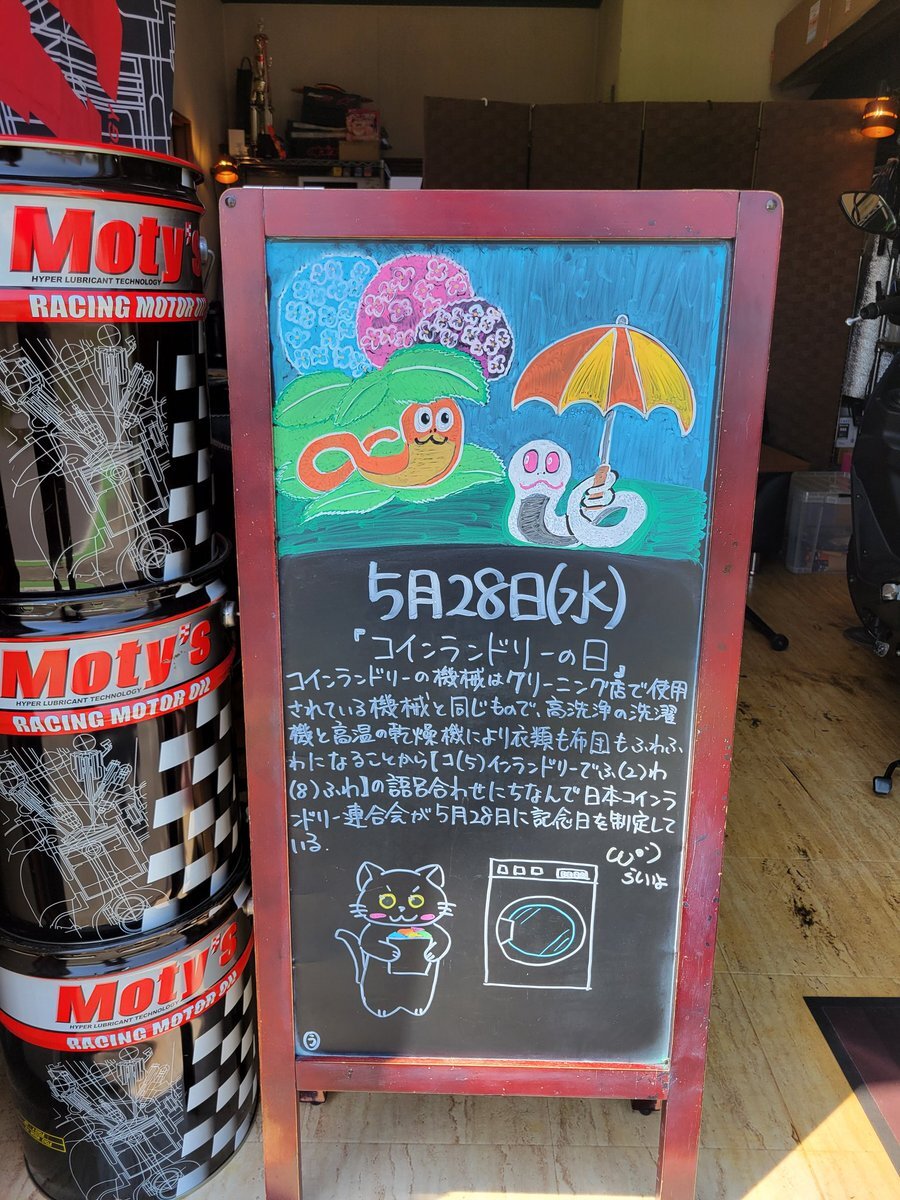 Moty's
HYPER LUBRICANT TECHNOLOGY
RACING MOTOR OIL
Moty's
HYPER LUBRICANT TECHNOLOGY
RACING MOTOR OIL
Moty's
HYPER LUBRICANT TECHNOLOGY
RACING MOTOR OIL
5月28日(水)
『コインランドリーの日』
コインランドリーの機械はクリーニング店で使用
されている機械と同じもので、高洗浄の洗濯
機と高温の乾燥機により衣類も布団もふわふ
わになることから【コ(5)インランドリーでふ(2)わ
(8)ふわ】の語呂合わせにちなんで日本コインラ
ンドリー連合会が5月28日に記念日を制定して
いる.
ω･)
らいよ
う